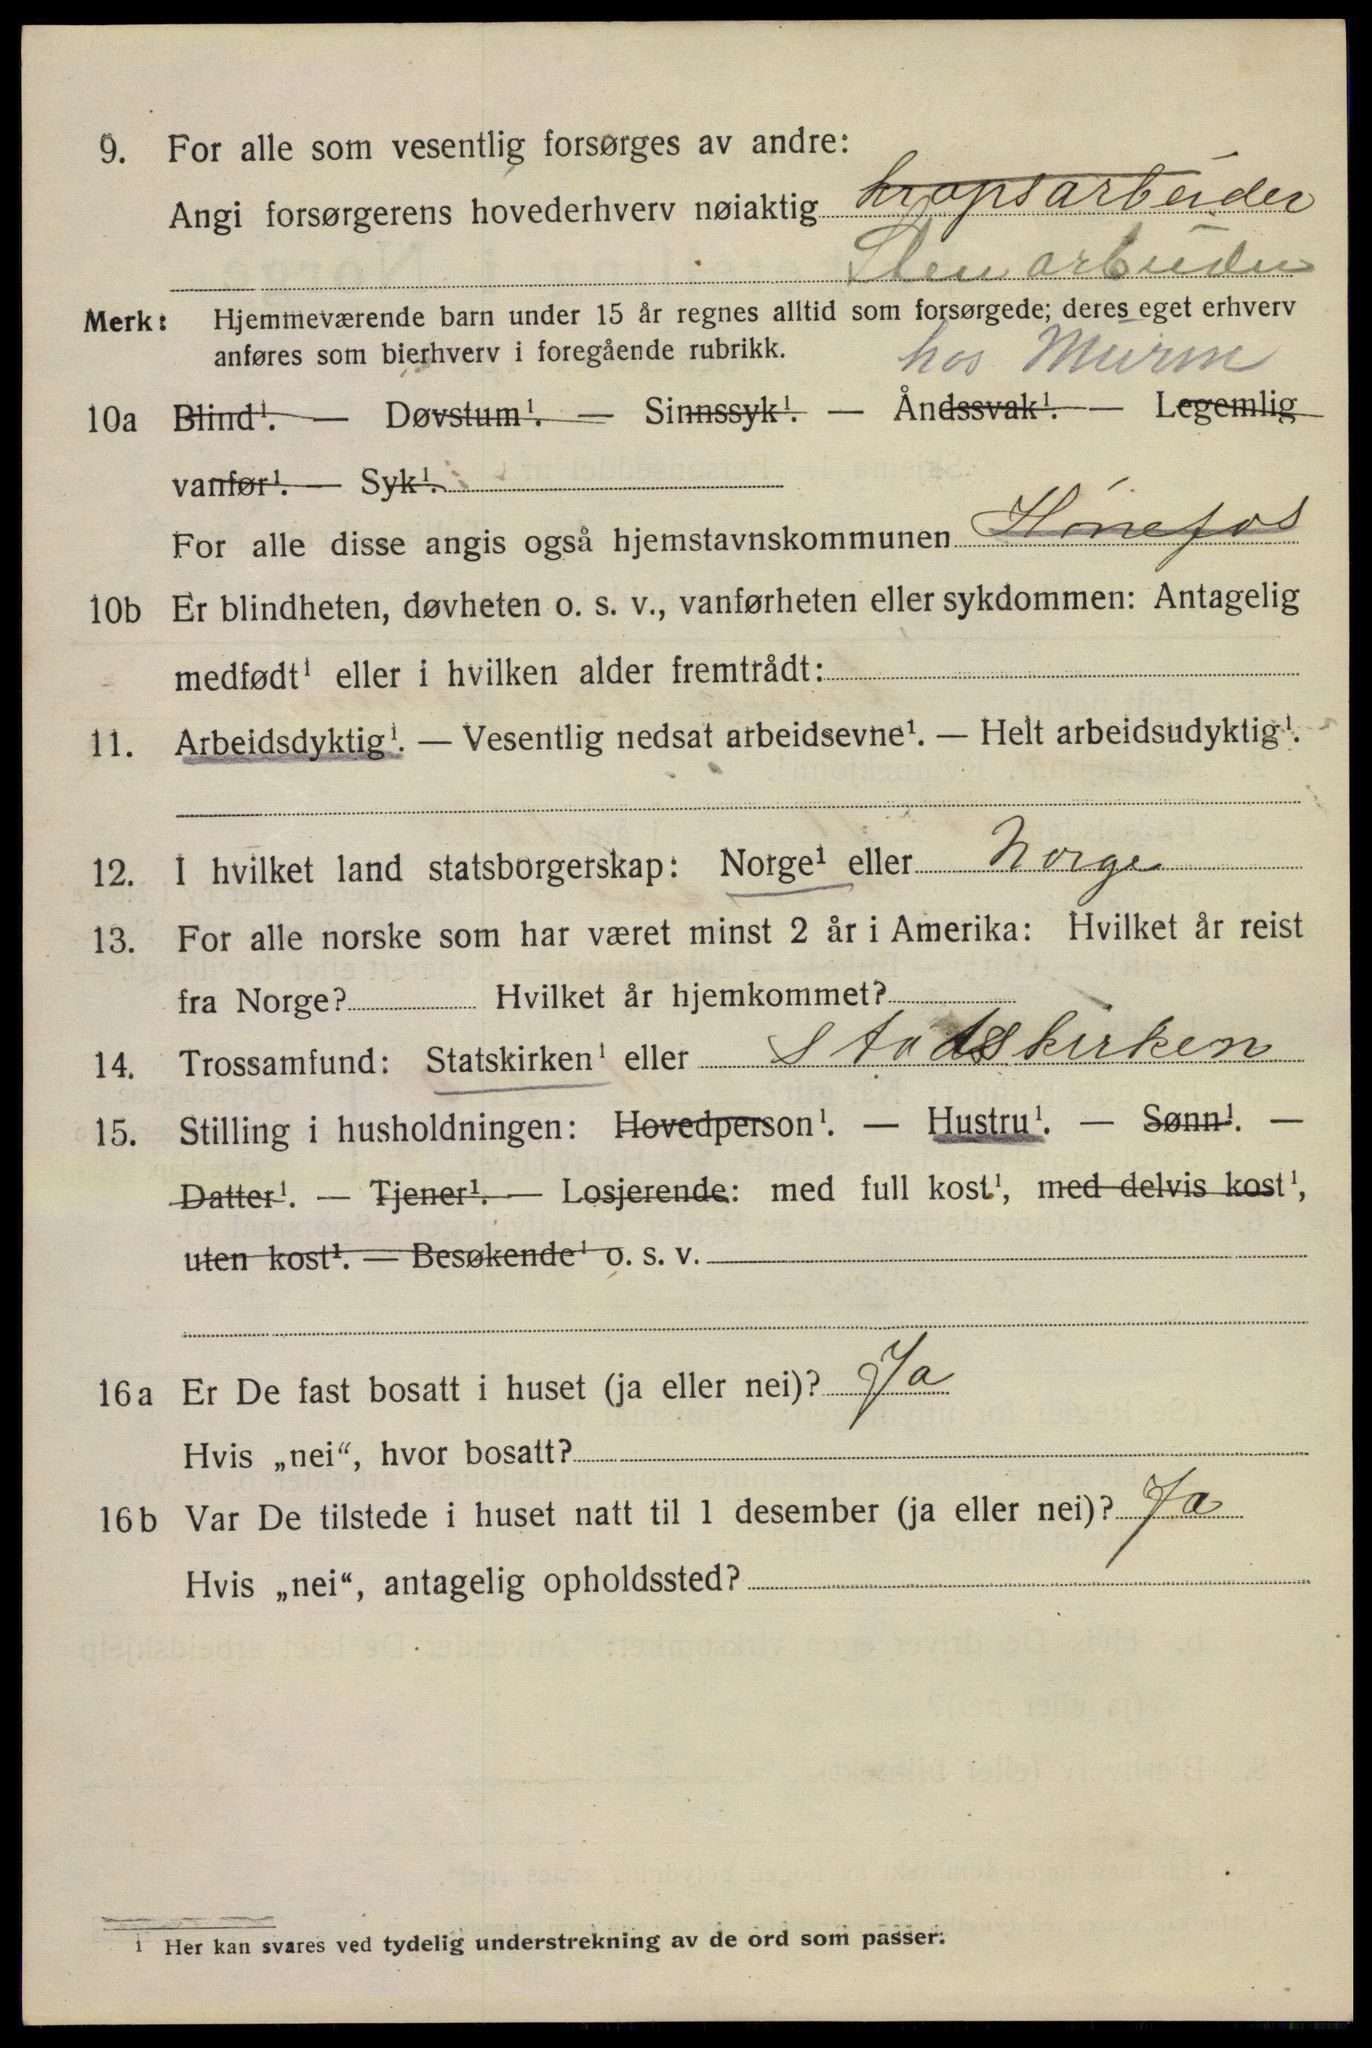 9. For alle som vesentlig forsørges av andre:
Angi forsørgerens hovederhverv nøiaktig kropsarbeider
Stenarbeider
Merk: Hjemmeværende barn under 15 år regnes alltid som forsørgede; deres eget erhverv
anføres som bierhverv i foregående rubrikk. hos Murm
10a Blind¹. — Døvstum¹. — Sinnssyk¹. — Åndssvak¹. — Legemlig
vanfør¹. — Syk¹.
For alle disse angis også hjemstavnskommunen Hønefos
10b Er blindheten, døvheten o. s. v., vanførheten eller sykdommen: Antagelig
medfødt¹ eller i hvilken alder fremtrådt:
11. Arbeidsdyktig¹. — Vesentlig nedsat arbeidsevne¹. — Helt arbeidsudyktig¹.
12. I hvilket land statsborgerskap: Norge¹ eller Norge
13. For alle norske som har været minst 2 år i Amerika: Hvilket år reist
fra Norge? Hvilket år hjemkommet?
14. Trossamfund: Statskirken¹ eller Statskirken
15. Stilling i husholdningen: Hovedperson¹. — Hustru¹. — Sønn¹. —
Datter¹. — Tjener¹. — Losjerende: med full kost¹, med delvis kost¹,
uten kost¹. — Besøkende¹ o. s. v.
16a Er De fast bosatt i huset (ja eller nei)? Ja
Hvis „nei“, hvor bosatt?
16b Var De tilstede i huset natt til 1 desember (ja eller nei)? Ja
Hvis „nei“, antagelig opholdssted?
¹ Her kan svares ved tydelig understrekning av de ord som passer.